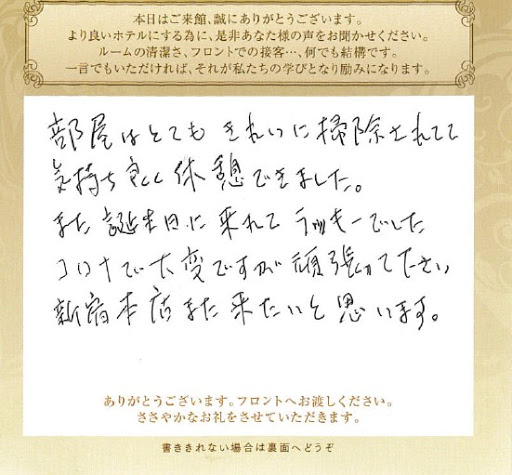 本日はご来館、誠にありがとうございます。
より良いホテルにする為に、是非あなた様の声をお聞かせください。
ルームの清潔さ、フロントでの接客…、何でも結構です。
一言でもいただければ、それが私たちの学びとなり励みになります。
部屋はとてもきれいに掃除されてて
気持ち良く休憩できました。
また誕生日に来れてラッキーでした
コロナで大変ですが頑張ってください
新宿本店また来たいと思います。
ありがとうございます。フロントへお渡しください。
ささやかなお礼をさせていただきます。
書ききれない場合は裏面へどうぞ